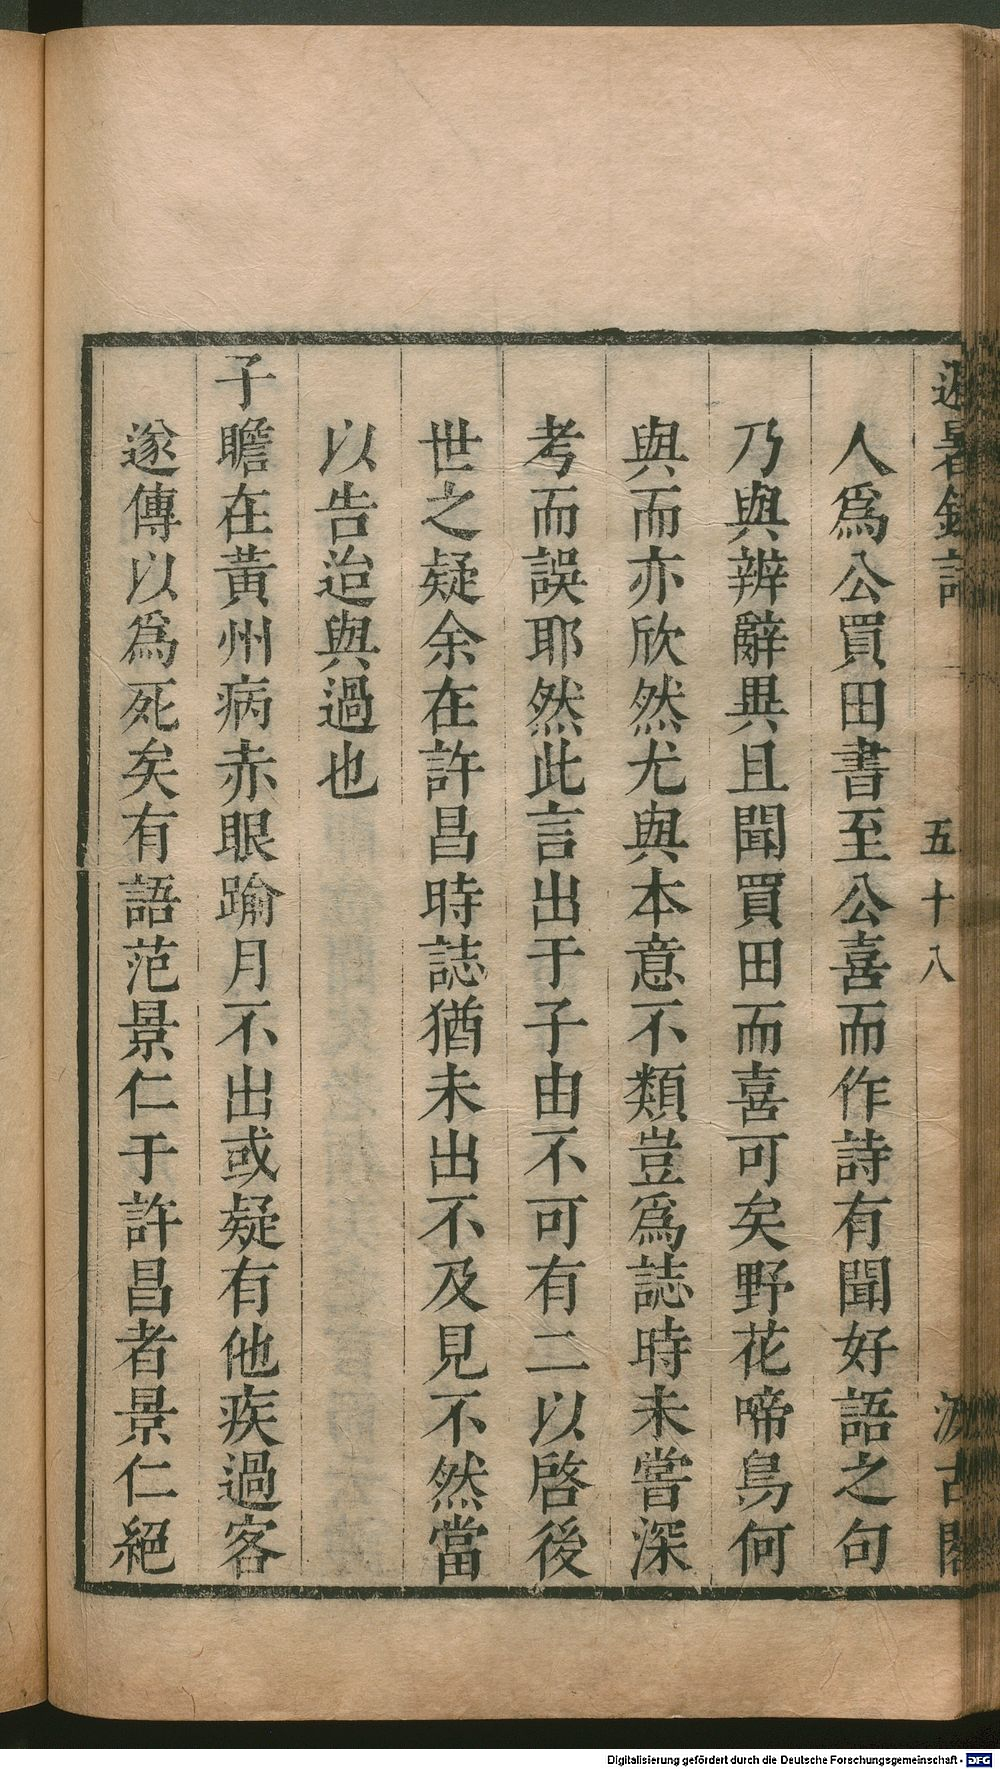 避暑錄話 五十八 汲古閣
人爲公買田書至公喜而作詩有聞好語之句
乃與辨辭異且聞買田而喜可矣野花啼鳥何
與而亦欣然尤與本意不類豈爲誌時未嘗深
考而誤耶然此言出于子由不可有二以啓後
世之疑余在許昌時誌猶未出不及見不然當
以告迨與過也
子瞻在黃州病赤眼踰月不出或疑有他疾過客
遂傳以爲死矣有語范景仁于許昌者景仁絕
Digitalisierung gefördert durch die Deutsche Forschungsgemeinschaft - DFG